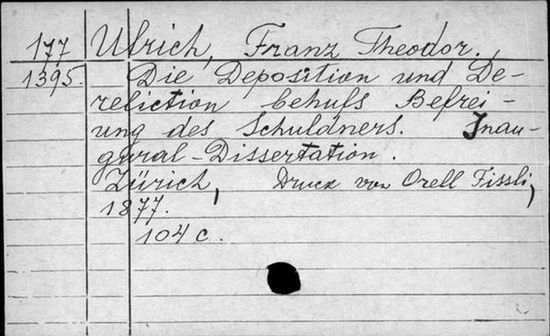 177 Ulrich, Franz Theodor.
1395. Die Deposition und De-
reliction behufs Befrei-
ung des Schuldners. Inau-
gural-Dissertation.
Zürich, Druck von Orell Fissli,
1877.
104 c.